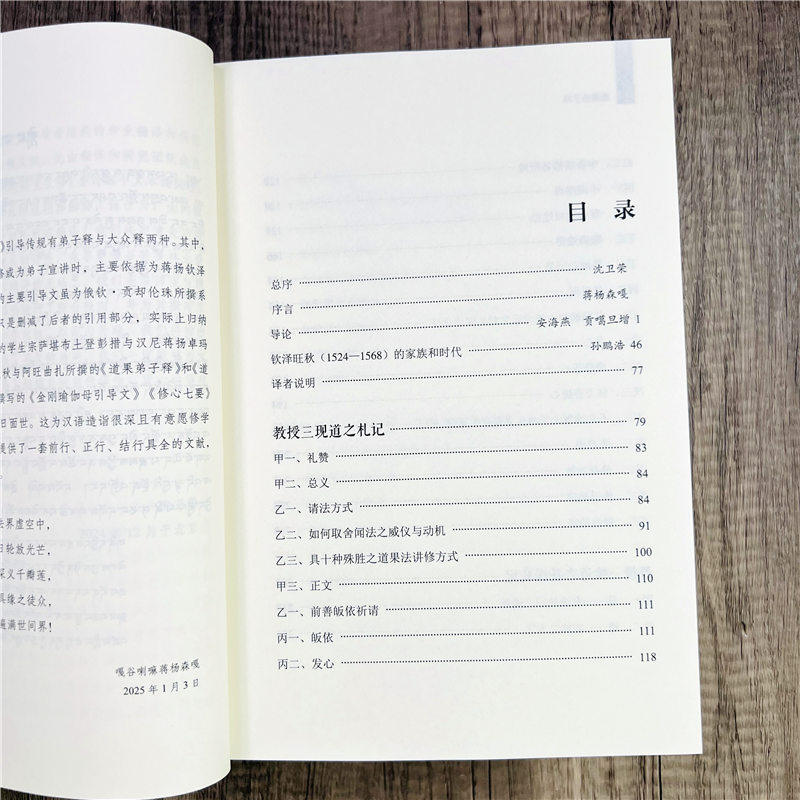 》引导传规有弟子释与大众释两种。其中,
修成为弟子宣讲时,主要依据为蒋扬钦泽
的主要引导文虽为俄钦·贡却伦珠所撰系
只是删减了后者的引用部分,实际上归纳
的学生宗萨堪布土登彭措与汉尼蒋扬卓玛
秋与阿旺曲扎所撰的《道果弟子释》和《道
撰写的《金刚瑜伽母引导文》《修心七要》
日面世。这为汉语造诣很深且有意愿修学
提供了一套前行、正行、结行具全的文献,
法界虚空中,
日轮放光芒,
深义千瓣莲,
具缘之徒众,
遍满世间界!
嘎谷喇嘛蒋杨森嘎
2025年1月3日
目 录
总序 沈卫荣
序言 蒋杨森嘎
导论 安海燕 贡噶旦增 1
钦泽旺秋(1524—1568)的家族和时代 孙鹏浩 46
译者说明 77
教授三现道之札记 79
甲一、礼赞 83
甲二、总义 84
乙一、请法方式 84
乙二、如何取舍闻法之威仪与动机 91
乙三、具十种殊胜之道果法讲修方式 100
甲三、正文 110
乙一、前善皈依祈请 111
丙一、皈依 111
丙二、发心 118